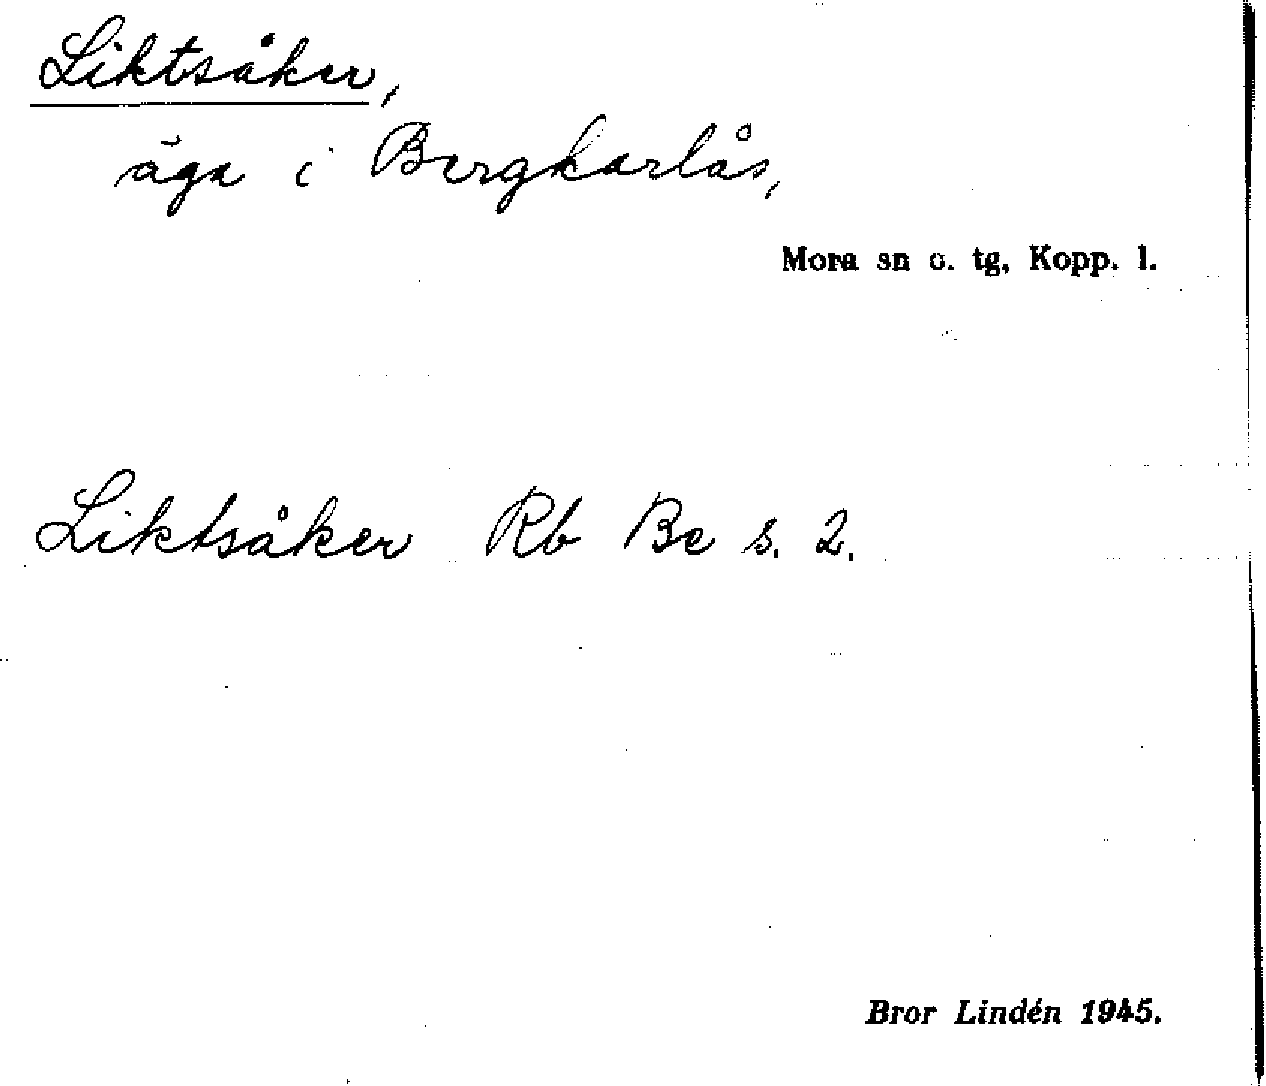 Liktsåker,
äga i Bergkarlås,
Mora sn o. tg, Kopp. l.
Liktsåker Rb Be s. 2.
Bror Lindén 1945.